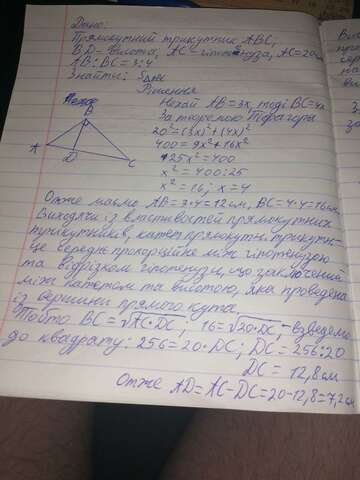 Дано:
Прямокутний трикутник ABC;
BD = висота, AC = гіпотенуза, AC = 20см
AB : BC = 3:4
Знайти:
Рішення
Нехай AB = 3x, тоді BC = 4x
B
За теоремою Піфагора
20² = (3x)² + (4x)²
A
400 = 9x² + 16x²
D
25x² = 400
C
x² = 400:25
x² = 16; x = 4
Отже маємо AB = 3·4 = 12см, BC = 4·4 = 16см.
Виходячи із властивостей прямокутних
трикутників, катет прямокутн. трикутн-
це середнє пропорційне між гіпотенузою
та відрізком гіпотенузи, що заключений
між катетом та висотою, яка проведена
із вершини прямого кута.
Тобто BC = √AC·DC; 16 = √20·DC, - взведемо
до квадрату: 256 = 20·DC; DC = 256:20
DC = 12,8см
Отже AD = AC - DC = 20 - 12,8 = 7,2см